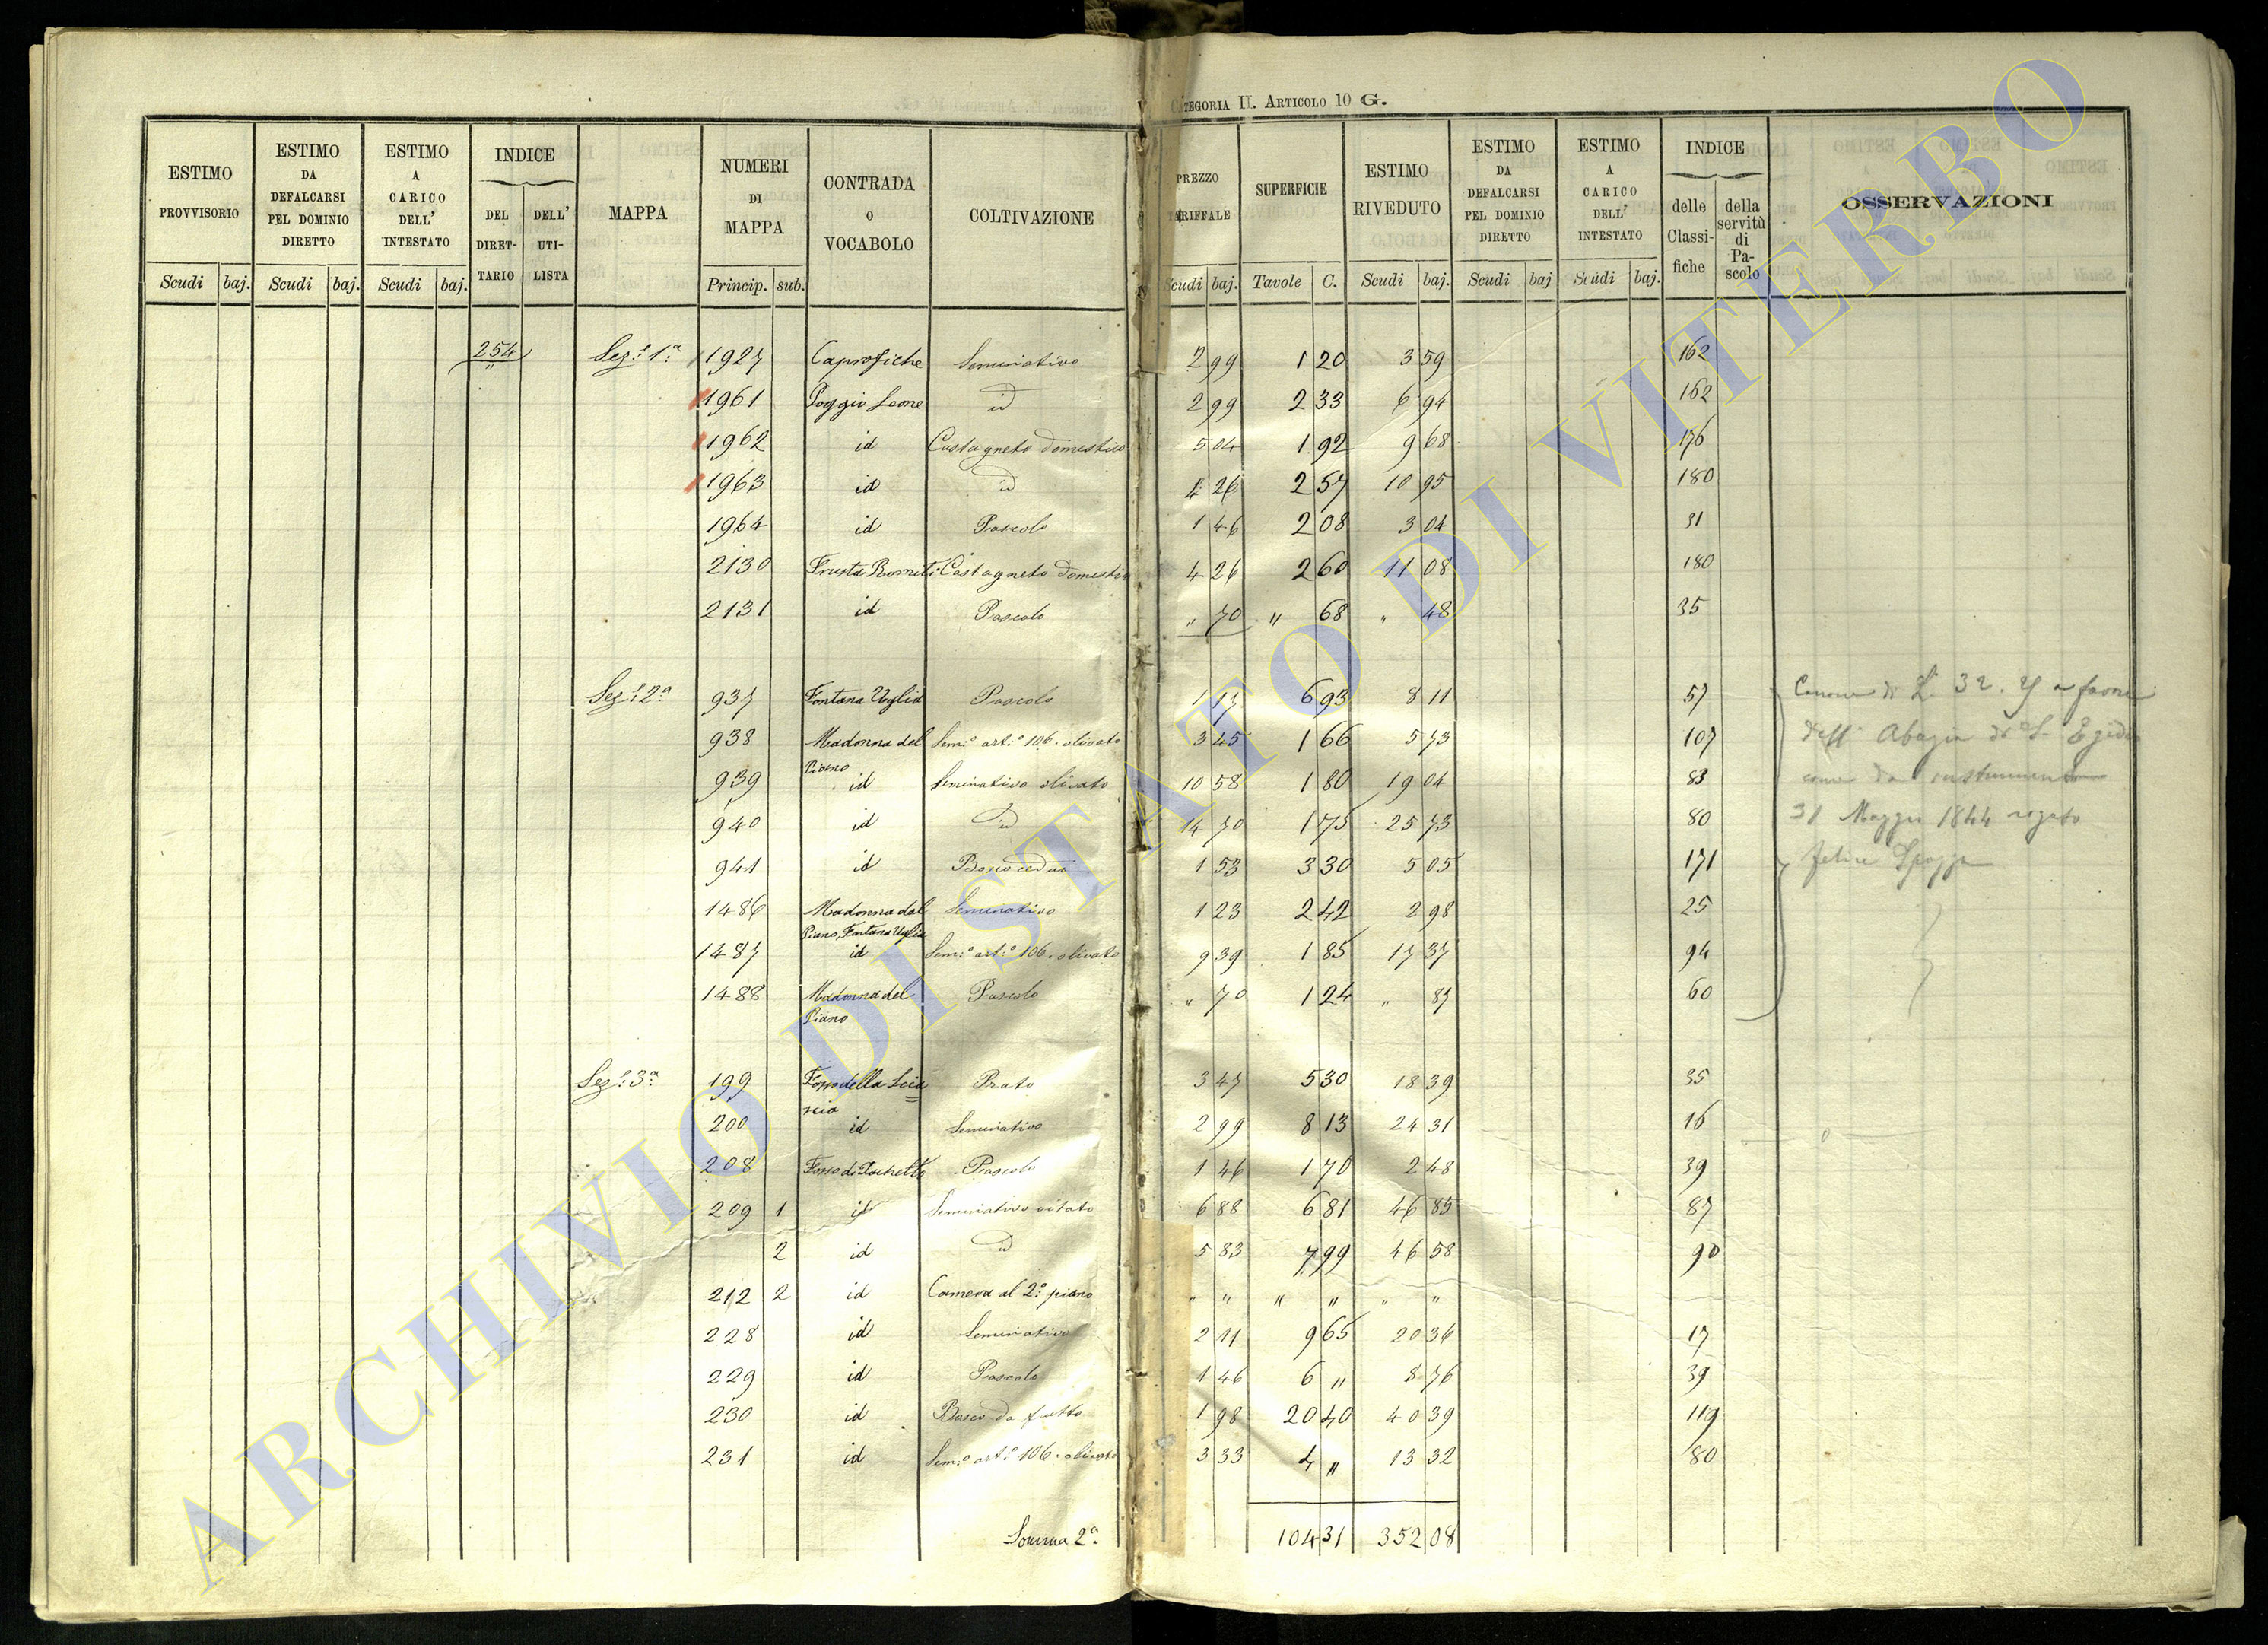 CATEGORIA II. ARTICOLO 10 G.
ESTIMO PROVVISORIO Scudi baj.
ESTIMO DA DEFALCARSI PEL DOMINIO DIRETTO Scudi baj.
ESTIMO A CARICO DELL' INTESTATO Scudi baj.
INDICE DEL DIRETTARIO DELL' UTILISTA
MAPPA
NUMERI DI MAPPA Princip. sub.
CONTRADA O VOCABOLO
COLTIVAZIONE
PREZZO TARIFFALE Scudi baj.
SUPERFICIE Tavole C.
ESTIMO RIVEDUTO Scudi baj.
ESTIMO DA DEFALCARSI PEL DOMINIO DIRETTO Scudi baj
ESTIMO A CARICO DELL' INTESTATO Scudi baj.
INDICE delle Classifiche della servitù di Pascolo
OSSERVAZIONI
254 Sez.e 1.a 1927 Caprofiche Seminativo 2 99 1 20 3 59 162
1961 Poggio Leone id 2 99 2 33 6 94 162
1962 id Castagneto domestico 5 04 1 92 9 68 176
1963 id id 4 26 2 57 10 95 180
1964 id Pascolo 1 46 2 08 3 04 31
2130 Castagneto domestico 4 26 2 60 11 08 180
2131 id Pascolo " 70 " 68 " 48 35
Sez.e 2.a 937 Fontana Uglia Pascolo 1 17 6 93 8 11 57
938 Madonna del Piano Sem.o art.o 106. olivato 3 45 1 66 5 73 107
939 id Seminativo olivato 10 58 1 80 19 04 83
940 id id 14 70 1 75 25 73 80
941 id Bosco ceduo 1 53 3 30 5 05 171
1486 Madonna del Piano, Fontana Uglia Seminativo 1 23 2 42 2 98 25
1487 id Sem.o art.o 106. olivato 9 39 1 85 17 37 94
1488 Madonna del Piano Pascolo " 70 1 24 " 87 60
Canone di L. 32. a favore
dell' Abazia di S. Egidio
come da instrumento
31 Maggio 1844 rogato
Felice
Sez.e 3.a 199 Fosso della Prato 3 47 5 30 18 39 35
200 id Seminativo 2 99 8 13 24 31 16
208 Fosso di Pascolo 1 46 1 70 2 48 39
209 1 id Seminativo vitato 6 88 6 81 46 85 87
2 id id 5 83 7 99 46 58 90
212 2 id Camera al 2.o piano " " " " " "
228 id Seminativo 2 11 9 65 20 36 17
229 id Pascolo 1 46 6 " 8 76 39
230 id Bosco da frutto 1 98 20 40 40 39 119
231 id Sem.o art.o 106. olivato 3 33 4 " 13 32 80
Somma 2.a 104 31 352 08
ARCHIVIO DI STATO DI VITERBO